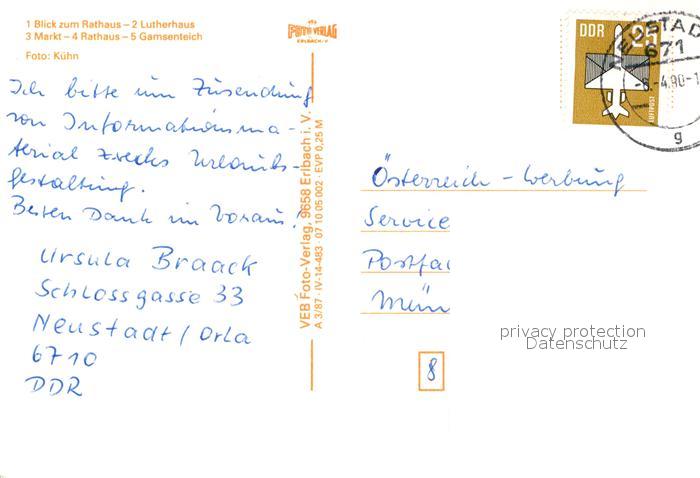 1 Blick zum Rathaus – 2 Lutherhaus
3 Markt – 4 Rathaus – 5 Gamsenteich
Foto: Kühn
Ich bitte um Zusendung
von Informationsma-
terial zwecks Urlaubs-
gestaltung.
Besten Dank im Voraus!
Ursula Braack
Schlossgasse 33
Neustadt / Orla
6710
DDR
FOTO-VERLAG
ERLBACH/V.
VEB Foto-Verlag, 9658 Erlbach i. V.
A 3/87 · IV-14-483 · 07 10 05 002 · EVP 0,25 M
DDR 25
LUFTPOST
NEUSTAD
671
-6.-4.90-1
g
Österreich - Werbung
Service
Postfa
Mün
8
privacy protection
Datenschutz